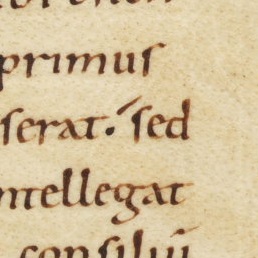 primus
serat. sed
ntellegat
consilii